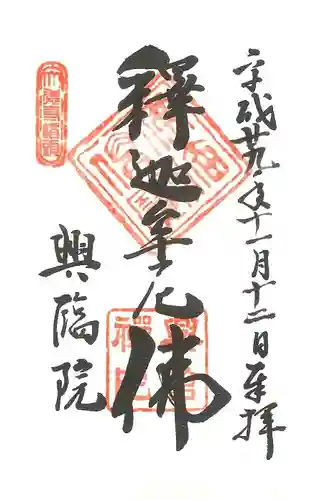 平成廿九年十一月十二日奉拝
釋迦牟尼佛
興臨院